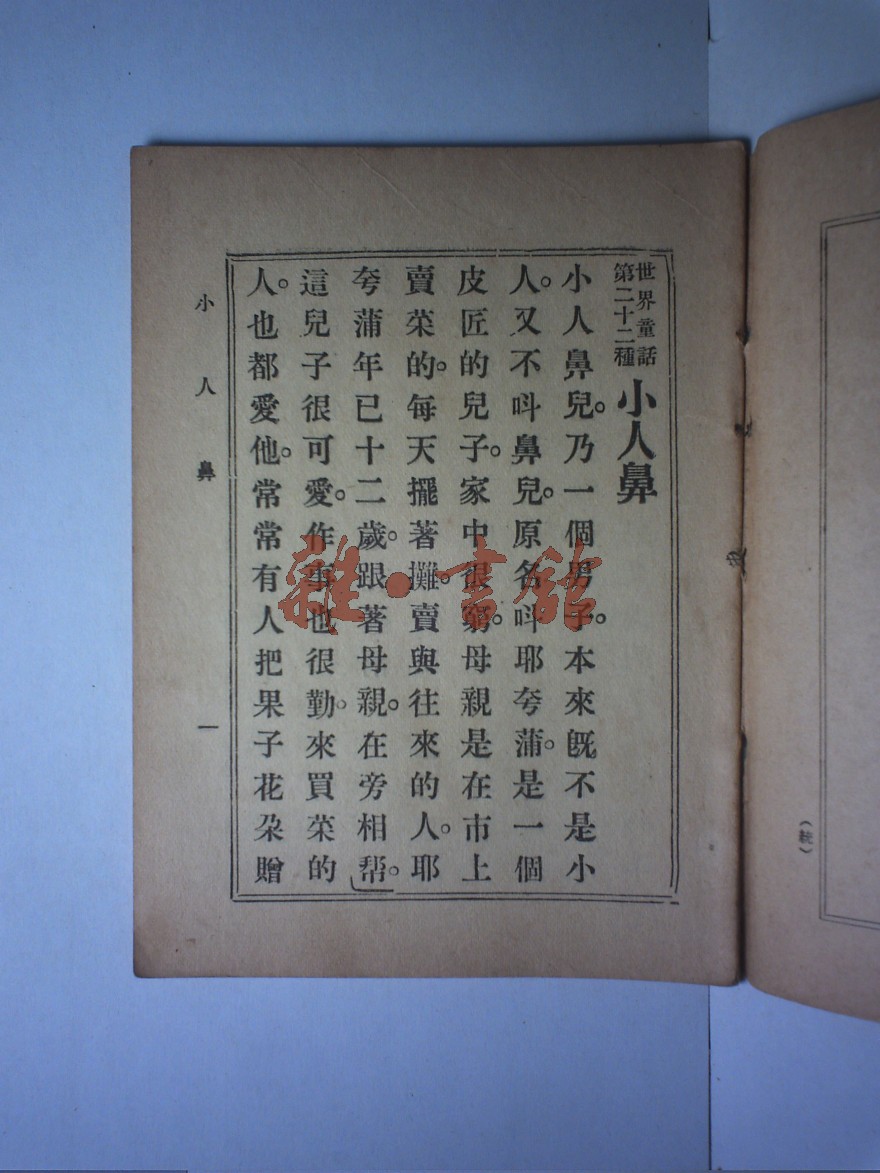 世界童話
第二十二種
小人鼻
小人鼻兒。乃一個男子。本來旣不是小
人。又不呌鼻兒。原名呌耶夸蒲。是一個
皮匠的兒子。家中很窮。母親是在市上
賣菜的。每天擺著攤。賣與往來的人。耶
夸蒲年已十二歲。跟著母親。在旁相帮。
這兒子很可愛。作事也很勤。來買菜的
人。也都愛他。常常有人把果子花朶贈
小人鼻
一
雜·書館
(統)